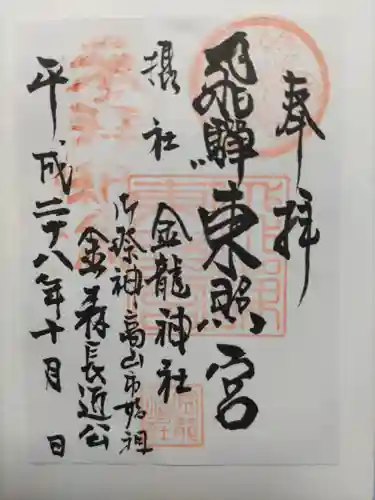 奉拝
飛騨東照宮
摂社
金龍神社
御祭神高山市始祖
金森長近公
平成二十八年十月 日